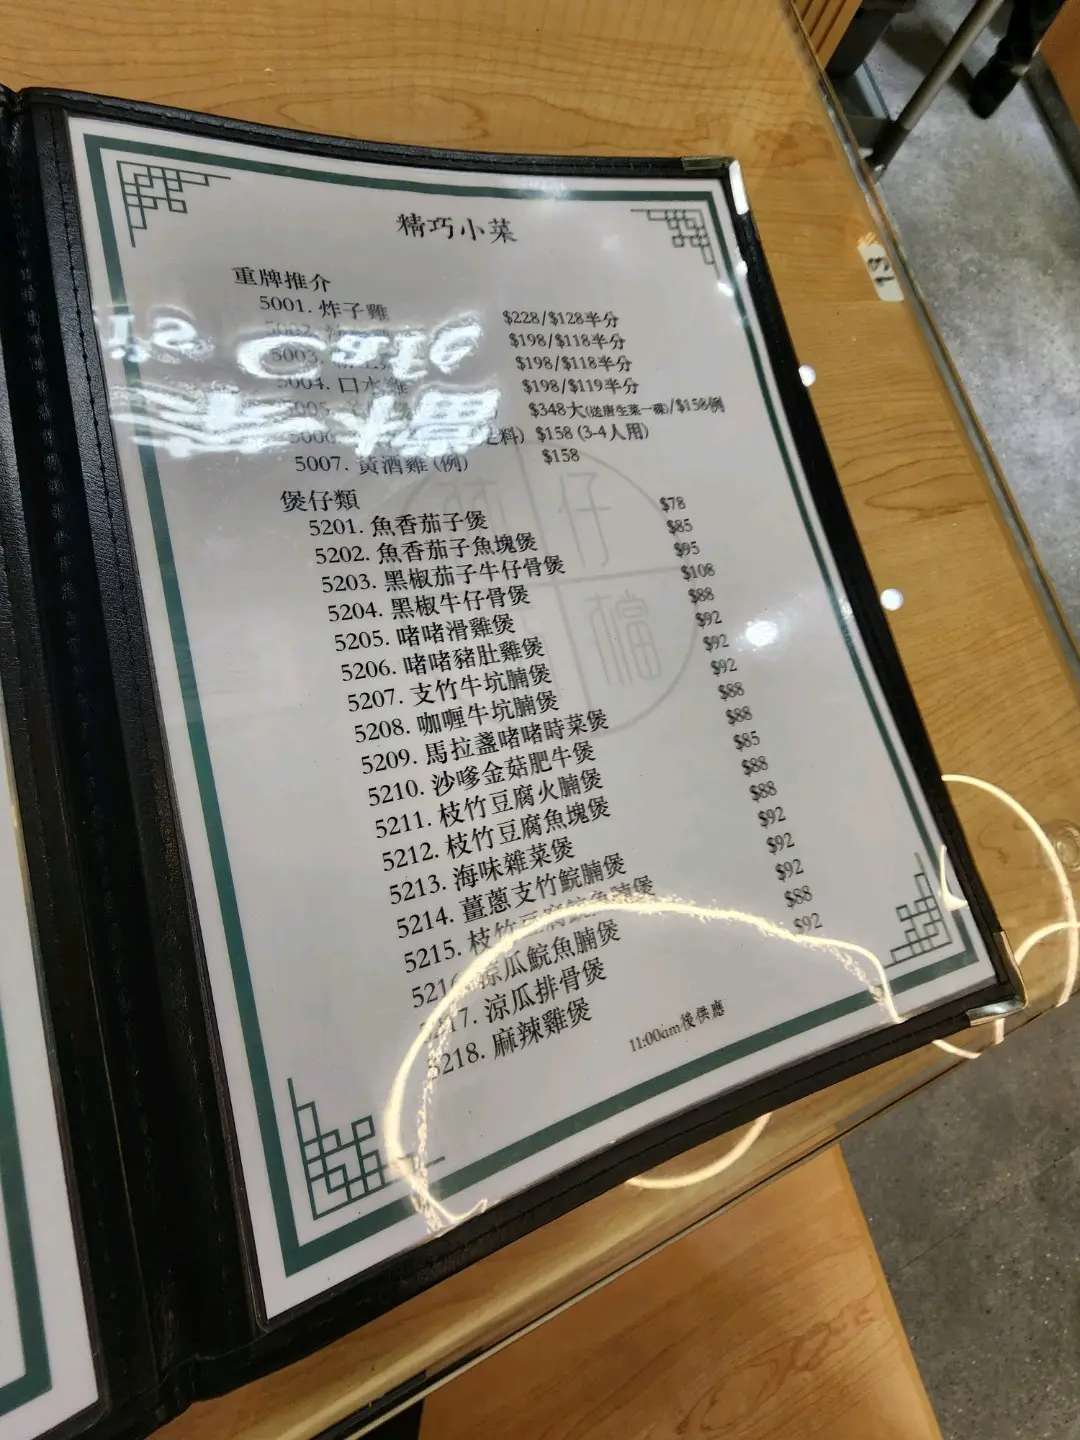 精巧小菜
重牌推介
5001. 炸子雞 $228/$128半分
5002. $198/$118半分
5003. $198/$118半分
5004. 口水雞 $198/$119半分
5005. $348大(送唐生菜一碟)/$158例
5006. 料) $158 (3-4人用)
5007. 黃酒雞 (例) $158
煲仔類
5201. 魚香茄子煲 $78
5202. 魚香茄子魚塊煲 $85
5203. 黑椒茄子牛仔骨煲 $95
5204. 黑椒牛仔骨煲 $108
5205. 啫啫滑雞煲 $88
5206. 啫啫豬肚雞煲 $92
5207. 支竹牛坑腩煲 $92
5208. 咖喱牛坑腩煲 $92
5209. 馬拉盞啫啫時菜煲 $88
5210. 沙嗲金菇肥牛煲 $88
5211. 枝竹豆腐火腩煲 $85
5212. 枝竹豆腐魚塊煲 $88
5213. 海味雜菜煲 $88
5214. 薑蔥支竹鯇腩煲 $92
5215. 枝竹豆腐鯇魚腩煲 $92
5216. 涼瓜鯇魚腩煲 $92
5217. 涼瓜排骨煲 $88
5218. 麻辣雞煲 $92
11:00am後供應
仔
檔
Cafe
19